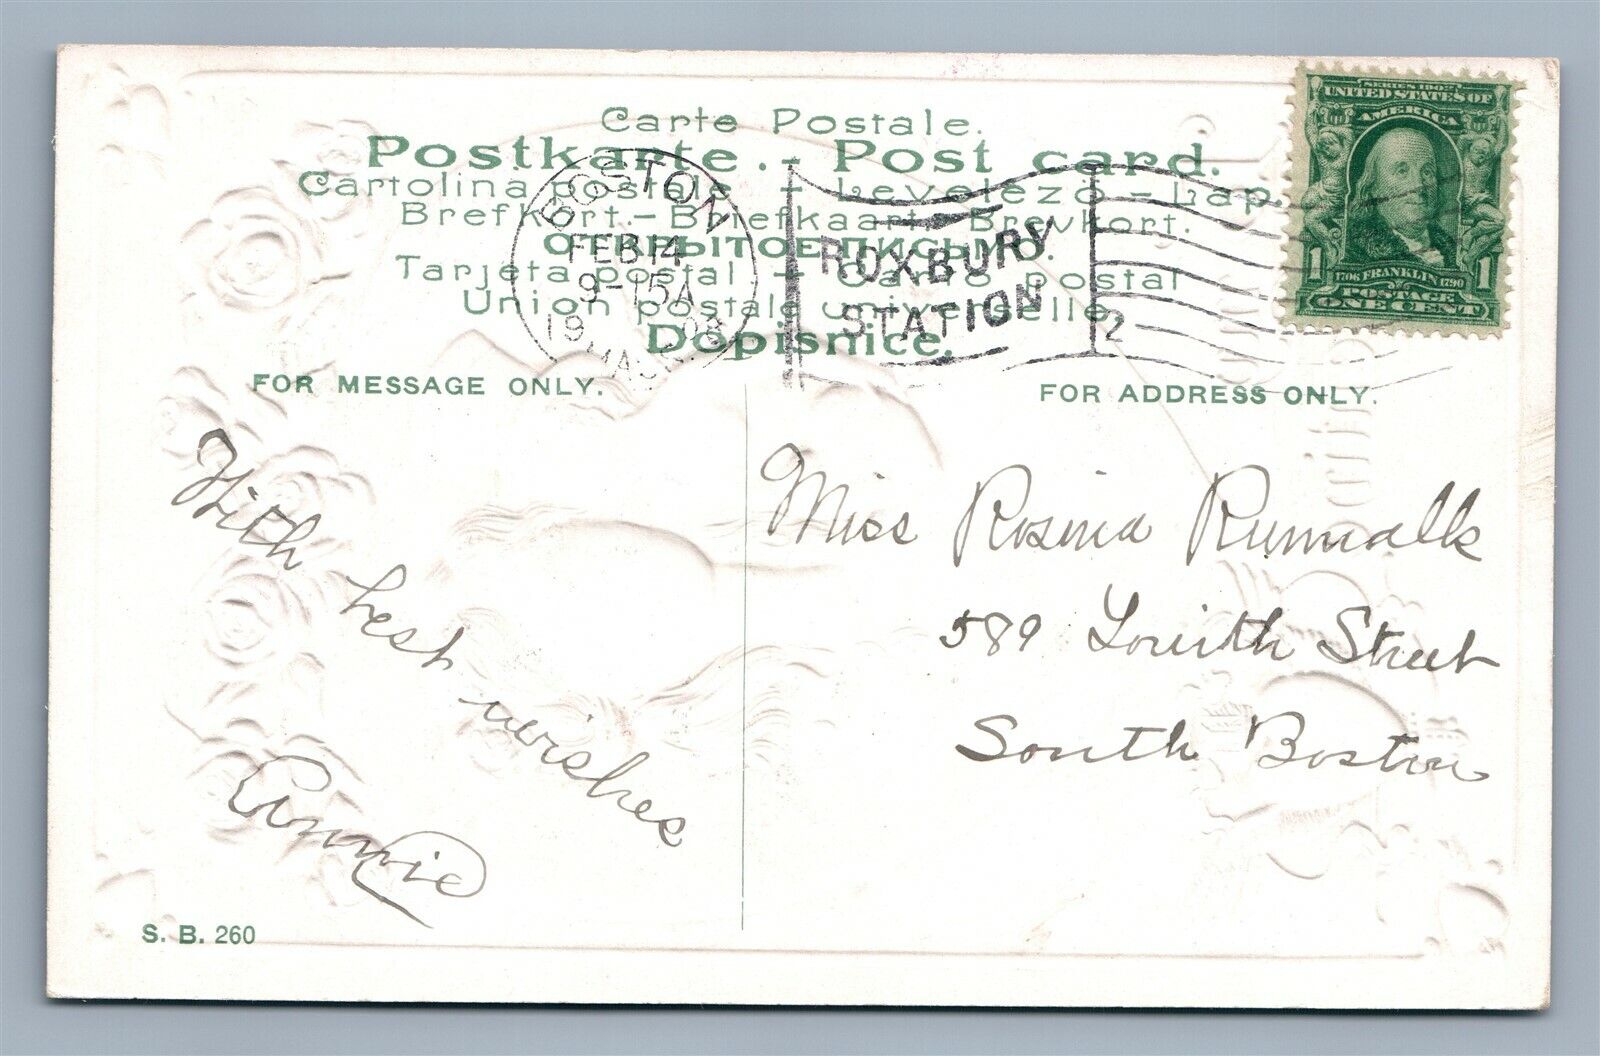 Carte Postale.
Postkarte. - Post card.
Cartolina postale - Levelező-Lap.
Brefkort. - Briefkaart - Brevkort.
ОТКРЫТОЕ ПИСЬМО.
Tarjeta postal - Carto postal
Union postale universelle.
Dopisnice.
BOSTON
FEB 14
9-15A
1908
MASS.
ROXBURY
STATION
2
SERIES 1902
UNITED STATES OF
AMERICA
1 1706 FRANKLIN 1790 1
POSTAGE
ONE CENT
FOR MESSAGE ONLY.
With best wishes
Annie
S. B. 260
FOR ADDRESS ONLY.
Miss Rosina
589 Street
South Boston